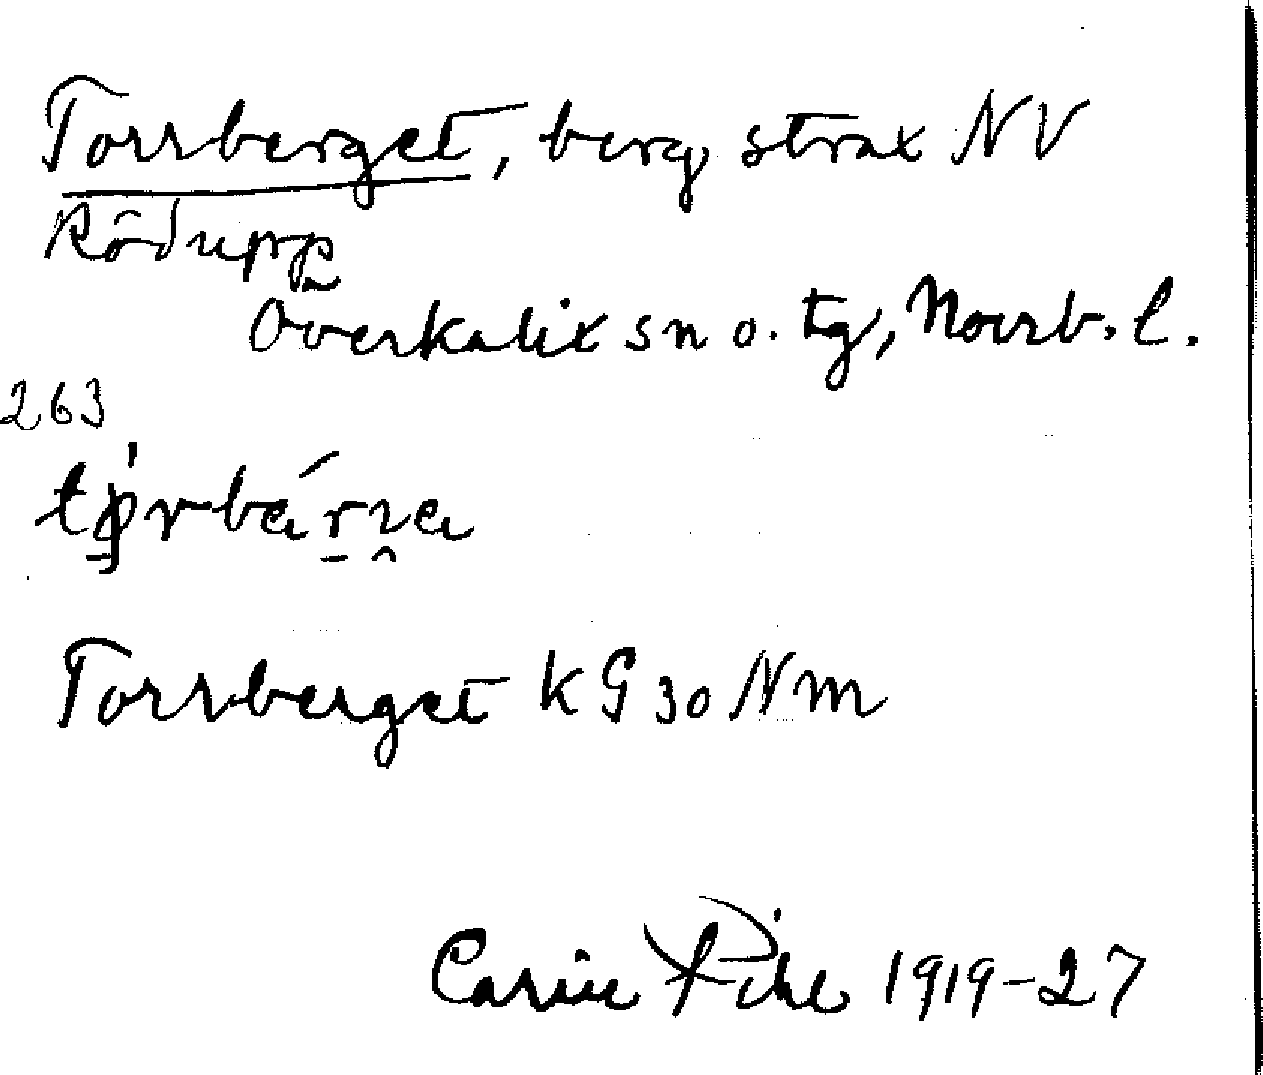 Torrberget, berg, strax NV
Rödupp
Överkalix sn o. tg, Norrb. l.
263
Torrberget KG 30 Nm
Carin Pihl 1919-27